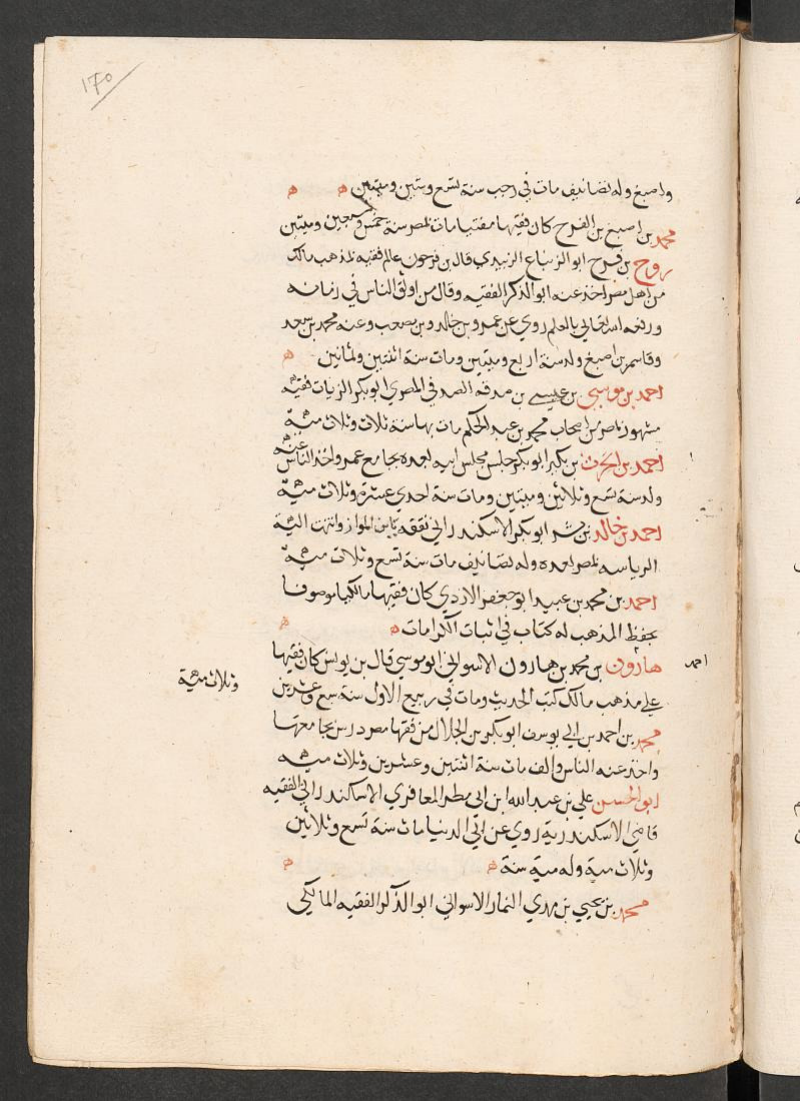 ١٧٥
واصبغ وله تصانيف مات في رجب سنة تسع وستين وميتين
محمد بن اصبغ بن الفرج كان فقيها مفتيا مات بمصر سنة خمس وسبعين وميتين
روح بن فرج ابو الزنباع الزبيدي قال بن فرحون عالم فقيه بمذهب مالك
من اهل مصر اخذ عنه ابو الذكر الفقيه وقال من اوثق الناس في زمانه
ورفعه الله تعالي بالعلم روي عن عمرو بن خالد وبن مصعب وعنه محمد بن سعد
وقاسم بن اصبغ ولد سنة اربع وميتين ومات سنة اثنتين وثمانين
احمد بن موسي بن عيسي بن صدقه الصدفي المصري ابو بكر الزيات فقيه
مشهور بمصر من اصحاب محمد بن عبد الحكم مات بها سنة ثلاث وثلاث ميه
احمد بن الحرث بن بكير ابو بكر جلس مجلس ابيه بعده بجامع عمرو واخذ الناس عنه
ولد سنة تسع وثلاثين وميتين ومات سنة احدي عشرة وثلاث ميه
احمد بن خالد بن ابو بكر الاسكندراني تفقه بابن المواز وانتهت اليه
الرياسه بمصر بعده وله تصانيف مات سنة تسع وثلاث ميه
احمد بن محمد بن عبيد ابو جعفر الازدي كان فقيها مالكيا موصوفا
بحفظ المذهب له كتاب في اثبات الكرامات
احمد
هارون بن محمد بن هارون الاسواني ابو موسي قال بن يونس كان فقيها
علي مذهب مالك كتب الحديث ومات في ربيع الاول سنة سبع وعشرين
وثلاث مية
محمد بن احمد بن ابي يوسف ابو بكر بن الخلال من فقها مصر درس بجامعها
واخذ عنه الناس والف مات سنة اثنتين وعشرين وثلاث ميه
ابو الحسن علي بن عبد الله ابن ابي مطر المعافري الاسكندراني الفقيه
قاضي الاسكندرية روي عن ابي الدنيا مات سنة تسع وثلاثين
وثلاث مية وله مية سنة
محمد بن يحيي بن مهدي التمار الاسواني ابو الذكر الفقيه المالكي